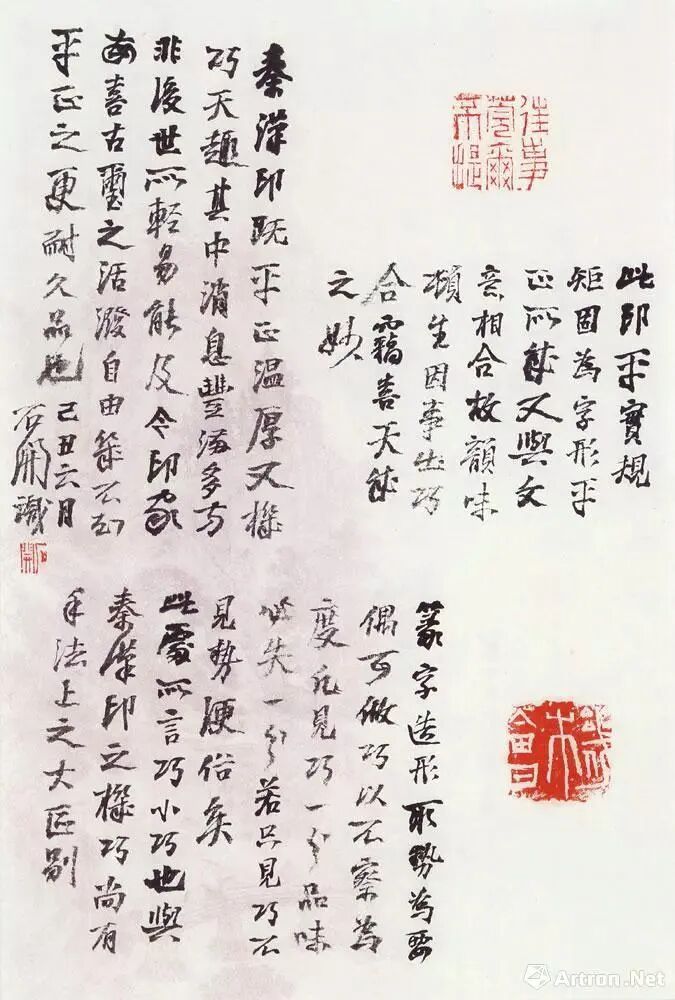 往事莞爾
此印平實規
矩固為字形平
正所又與文
意相合故韻味
頓生因事出巧
合喜天
之妙
秦漢印既平正溫厚又機
巧天趣其中消息豐滿多方
非後世所輕易能及今印家
每喜古璽之活潑自由不知
平正之更耐久品也己丑六月
石開識
石開
篆字造形取勢為要
偶可做巧以不察為
度凡見巧一分品味
必失一分若只見巧不
見勢便俗矣
此處所言巧小巧也與
秦漢印之機巧尚有
手法上之大區別
Artron.Net